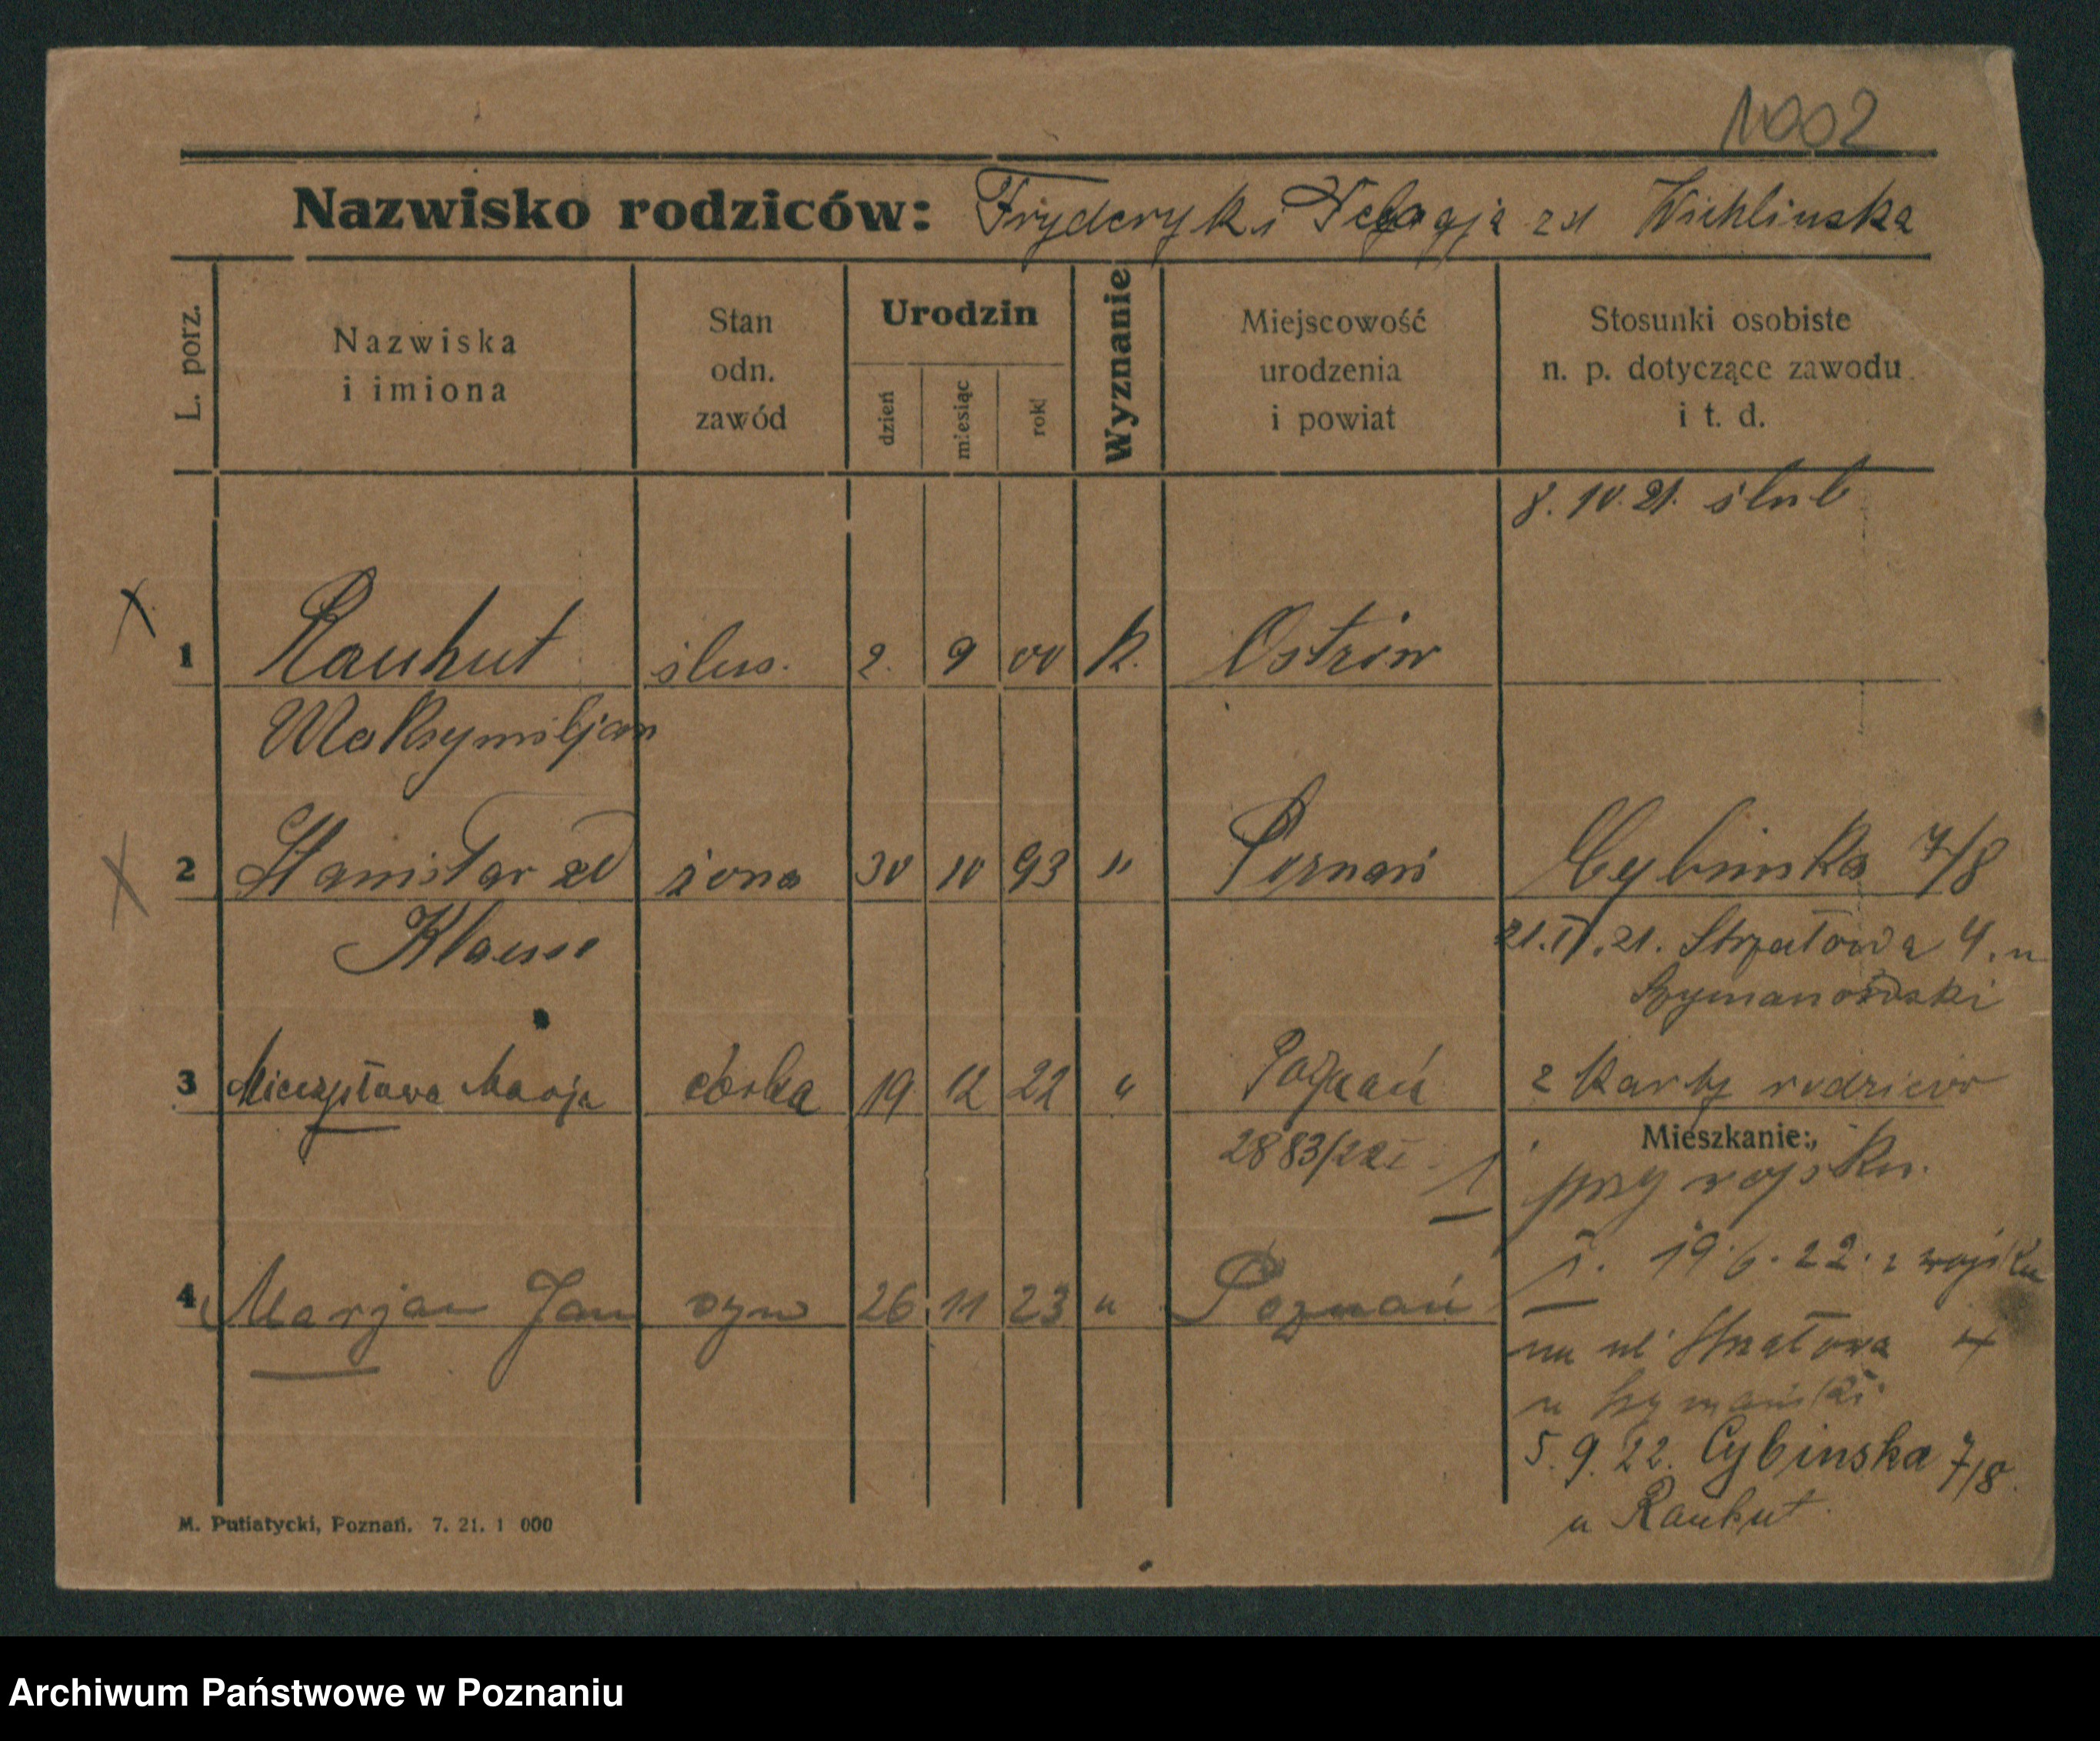 1002
Nazwisko rodziców: Fryderyk i Pelagja zd Wichlinska
L. porz.
Nazwiska
i imiona
Stan
odn.
zawód
Urodzin
dzień
miesiąc
rok
Wyznanie
Miejscowość
urodzenia
i powiat
Stosunki osobiste
n. p. dotyczące zawodu
i t. d.
8. 10. 21. ślub
X
1 Rauhut ślus. 2. 9 00 K. Ostrów
Maksymiljan
X
2 Stanisław zd żona 30 10 93 " Poznań Cybinska 7/8
Klause
21.IV.21. Strzałowa 4. u
Szymanowski
3 Mieczysława Marja córka 19 12 22 " Poznań z karty rodziców
2883/22 I
Mieszkanie:
przy wojsku.
4 Marjan Jan syn 26 11 23 " Poznań
19.6.22. z wojska
na ul Strzałowa 4
u Szymański
5. 9. 22. Cybinska 7/8.
u Rauhut.
M. Putiatycki, Poznań. 7. 21. 1 000
Archiwum Państwowe w Poznaniu